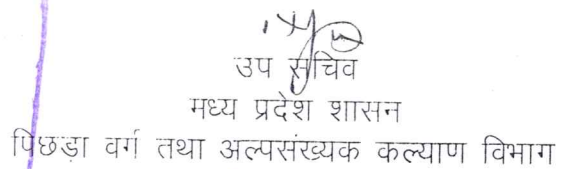 उप सचिव
मध्य प्रदेश शासन
पिछड़ा वर्ग तथा अल्पसंख्यक कल्याण विभाग